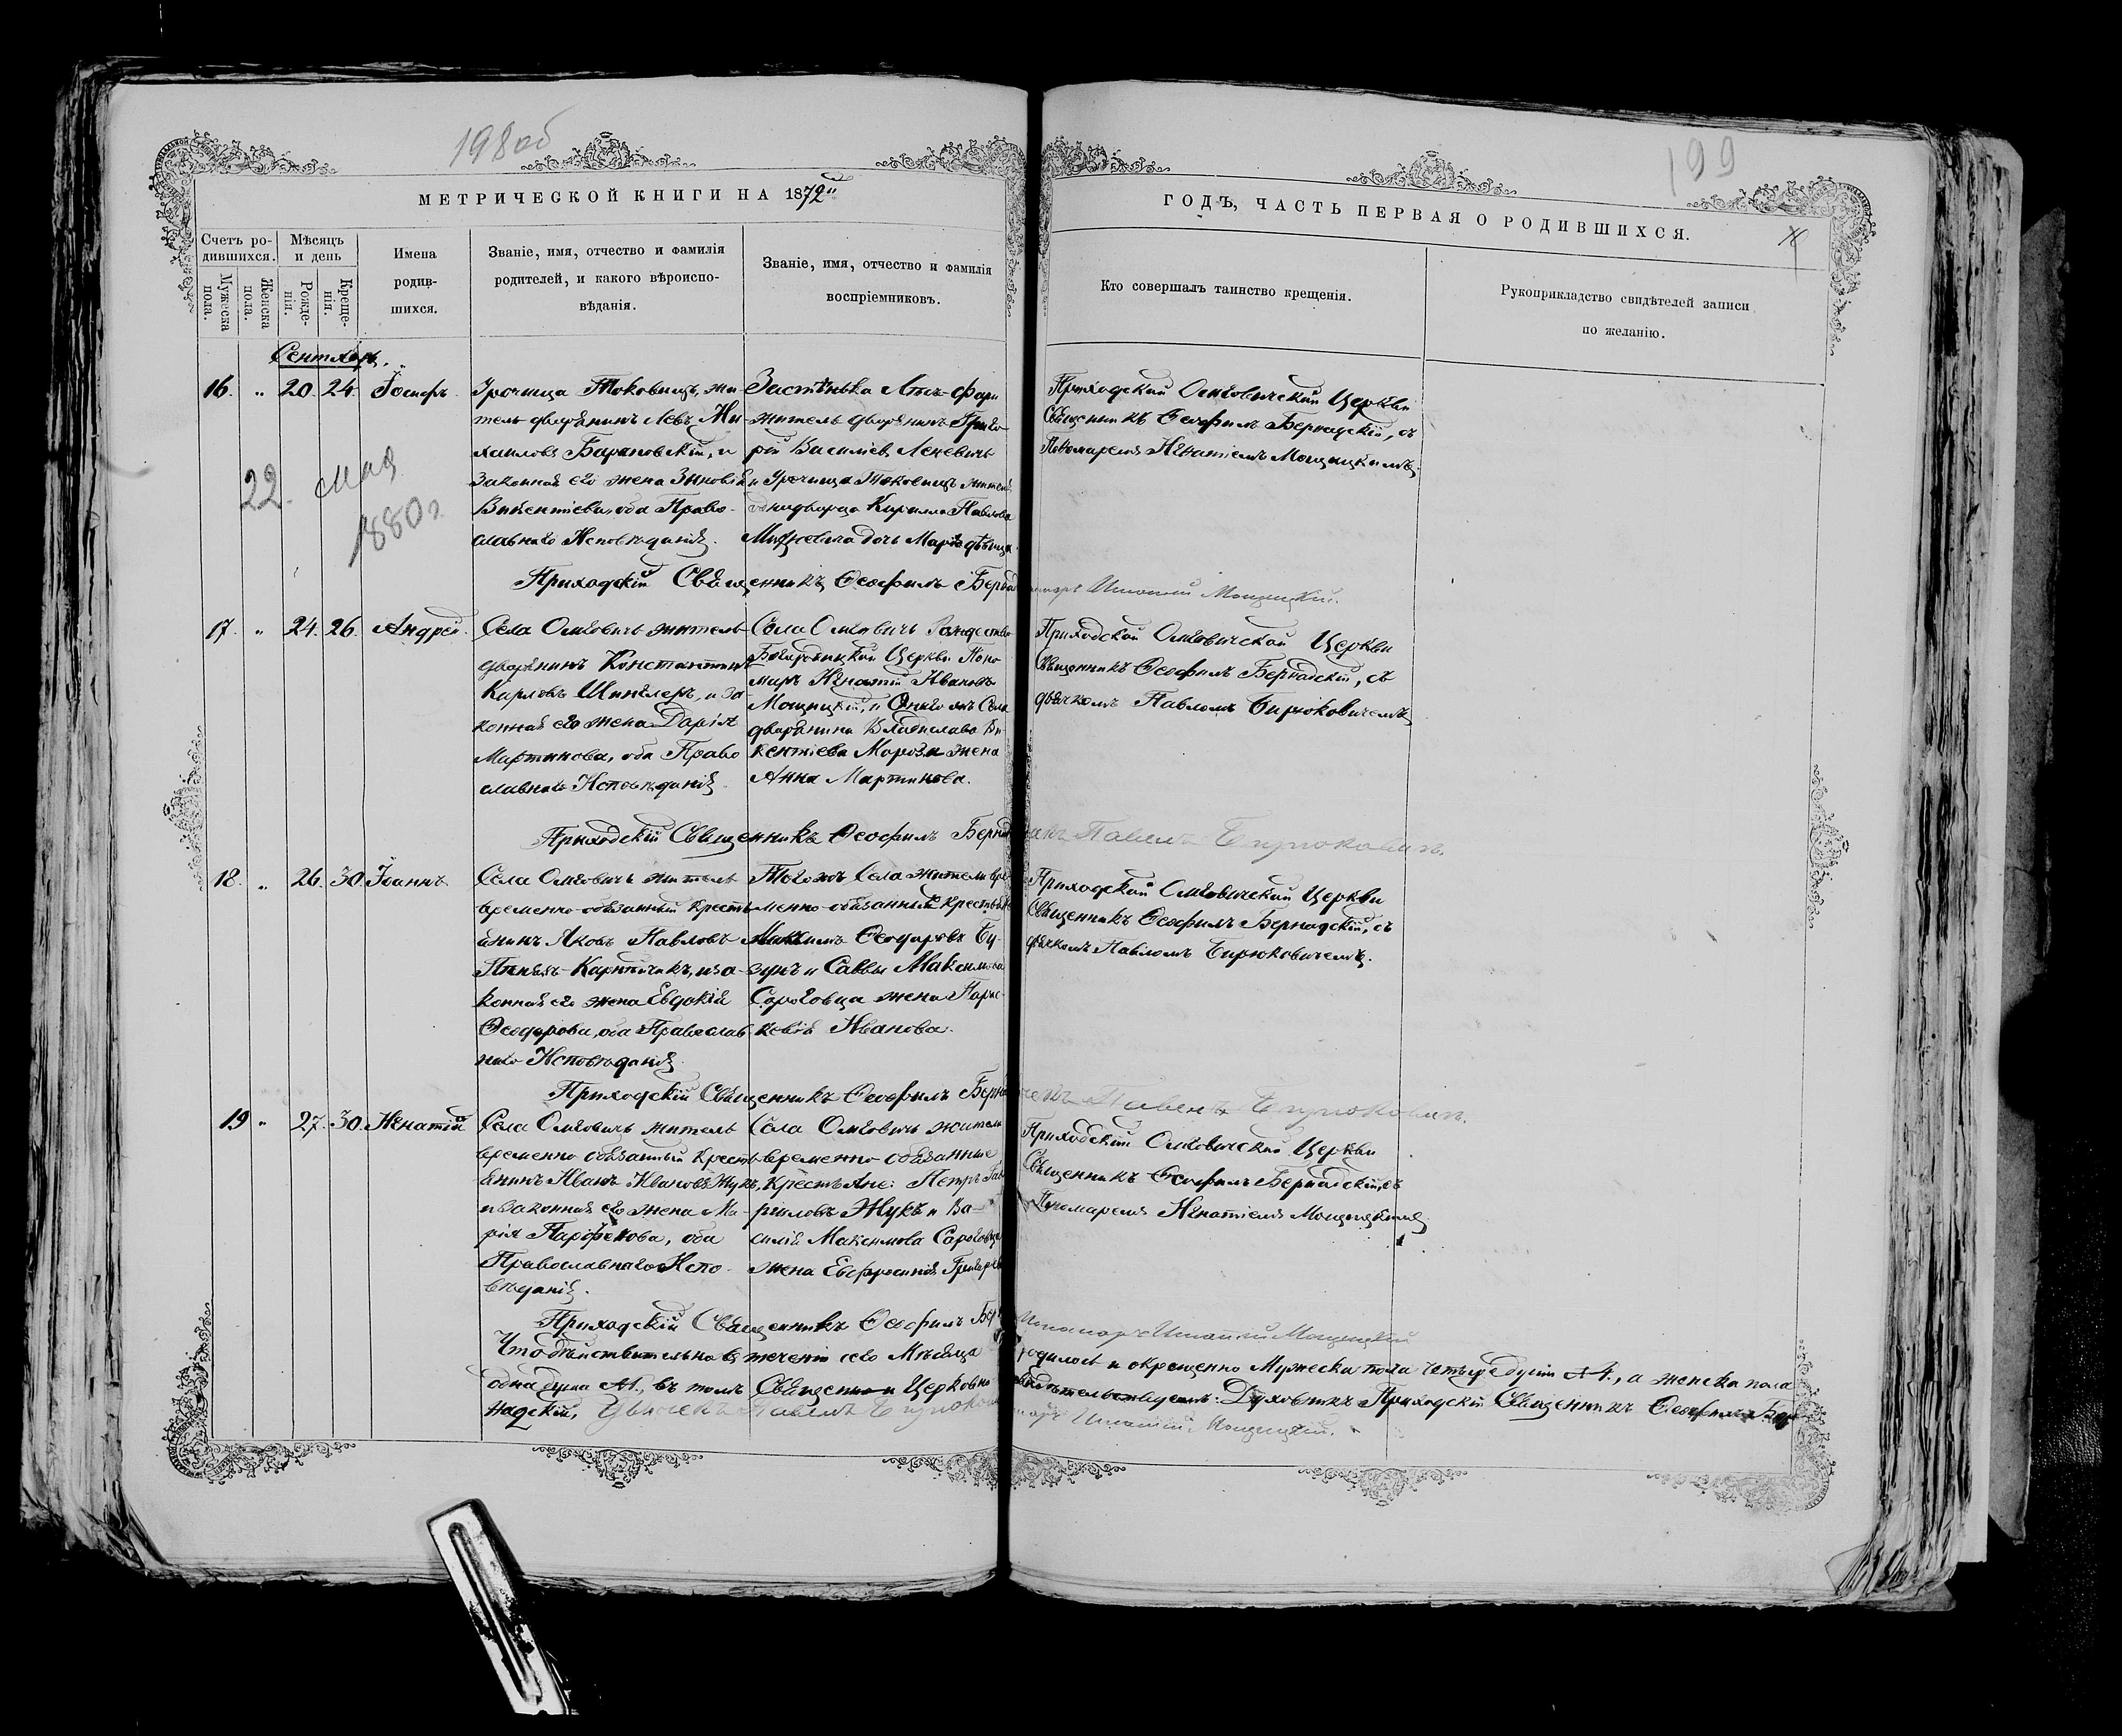 198об
199
МЕТРИЧЕСКОЙ КНИГИ НА 1872й
ГОДЪ, ЧАСТЬ ПЕРВАЯ О РОДИВШИХСЯ.
Счетъ ро-
дившихся.
Мужеска
пола.
Женска
пола.
Мѣсяцъ
и день
Рожде-
нія.
Креще-
нія.
Имена
родив-
шихся.
Званіе, имя, отчество и фамилія
родителей, и какого вѣроиспо-
вѣданія.
Званіе, имя, отчество и фамилія
воспріемниковъ.
Кто совершалъ таинство крещенія.
Рукоприкладство свидѣтелей записи
по желанію.
Сентябрь.
16. " 20. 24. Іосифъ.
Урочища Токовищъ, жи-
тель дворянинъ Левъ Ми-
хаиловъ Барановскій, и
законная его жена Зиновія
Викентіева, оба Право-
славнаго Исповѣданія.
Застѣнка
житель дворянинъ Григо-
рій Василіевъ Леневичъ
и Урочища Токовищъ жителя
однодворца Кирилла Павлова
дочь Марія дѣвица.
Приходской Омговичской Церкви
Священникъ Ѳеофилъ Бернадскій, съ
Пономаремъ Игнатіемъ Мощицкимъ.
22. Мая
1880 г.
Приходскій Священникъ Ѳеофилъ
Игнатій Мощицкій.
17. " 24. 26. Андрей.
Села Омговичъ житель
дворянинъ Константинъ
Карловъ Шинглеръ, и за-
конная его жена Дарія
Мартинова, оба Право
славнаго Исповѣданія.
Села Омговичъ Рождество
Богородицкой Церкви Поно
марь Игнатій Ивановъ
Мощицкій, и Онаго жъ Села
дворянина Владислава Ви
кентіева Мороза жена
Анна Мартинова.
Приходской Омговичской Церкви
Священникъ Ѳеофилъ Бернадскій, съ
дьячкомъ Павломъ Бирюковичемъ
Приходскій Священникъ Ѳеофилъ
Павелъ Бирюковичъ.
18. " 26. 30. Іоаннъ.
Села Омговичъ житель
временно-обязанный кресть
янинъ Яковъ Павловъ
и за-
конная его жена Евдокія
Ѳеодорова, оба Православ
наго Исповѣданія.
Того жъ Села жители вре
менно-обязанный крестьян
Максимъ Ѳеодоровъ Бу-
зунъ и Саввы Максимова
Сороговца жена Парас-
кевія Иванова.
Приходской Омговичской Церкви
Священникъ Ѳеофилъ Бернадскій, съ
дьячкомъ Павломъ Бирюковичемъ.
Приходскій Священникъ Ѳеофилъ
Павелъ Бирюковичъ.
19 " 27. 30. Игнатій
Села Омговичъ житель
временно обязанный кресть
янинъ Иванъ Ивановъ Жукъ,
и законная его жена Ма-
рія Парфенова, оба
Православнаго Испо-
вѣданія.
Села Омговичъ жители
временно обязанные
Крестьяне: Петръ Гав
риловъ Жукъ и Ва-
силія Максимова Сороговца
жена Евфросинія Григорьев
Приходской Омговичской Церкви
Священникъ Ѳеофилъ Бернадскій, съ
Пономаремъ Игнатіемъ Мощицкимъ
Приходскій Священникъ Ѳеофилъ
Пономарь Игнатій Мощицкій
Что дѣйствительно въ теченіи сего Мѣсяца родилось и окрещенно Мужеска пола четыре души № 4., а женска пола
одна душа № 1, въ томъ Священно и Церковно свидѣтельствуемъ: Духовникъ Приходскій Священникъ Ѳеофилъ Бер-
надскій, Дьячекъ Павелъ Игнатій Мощицкій.